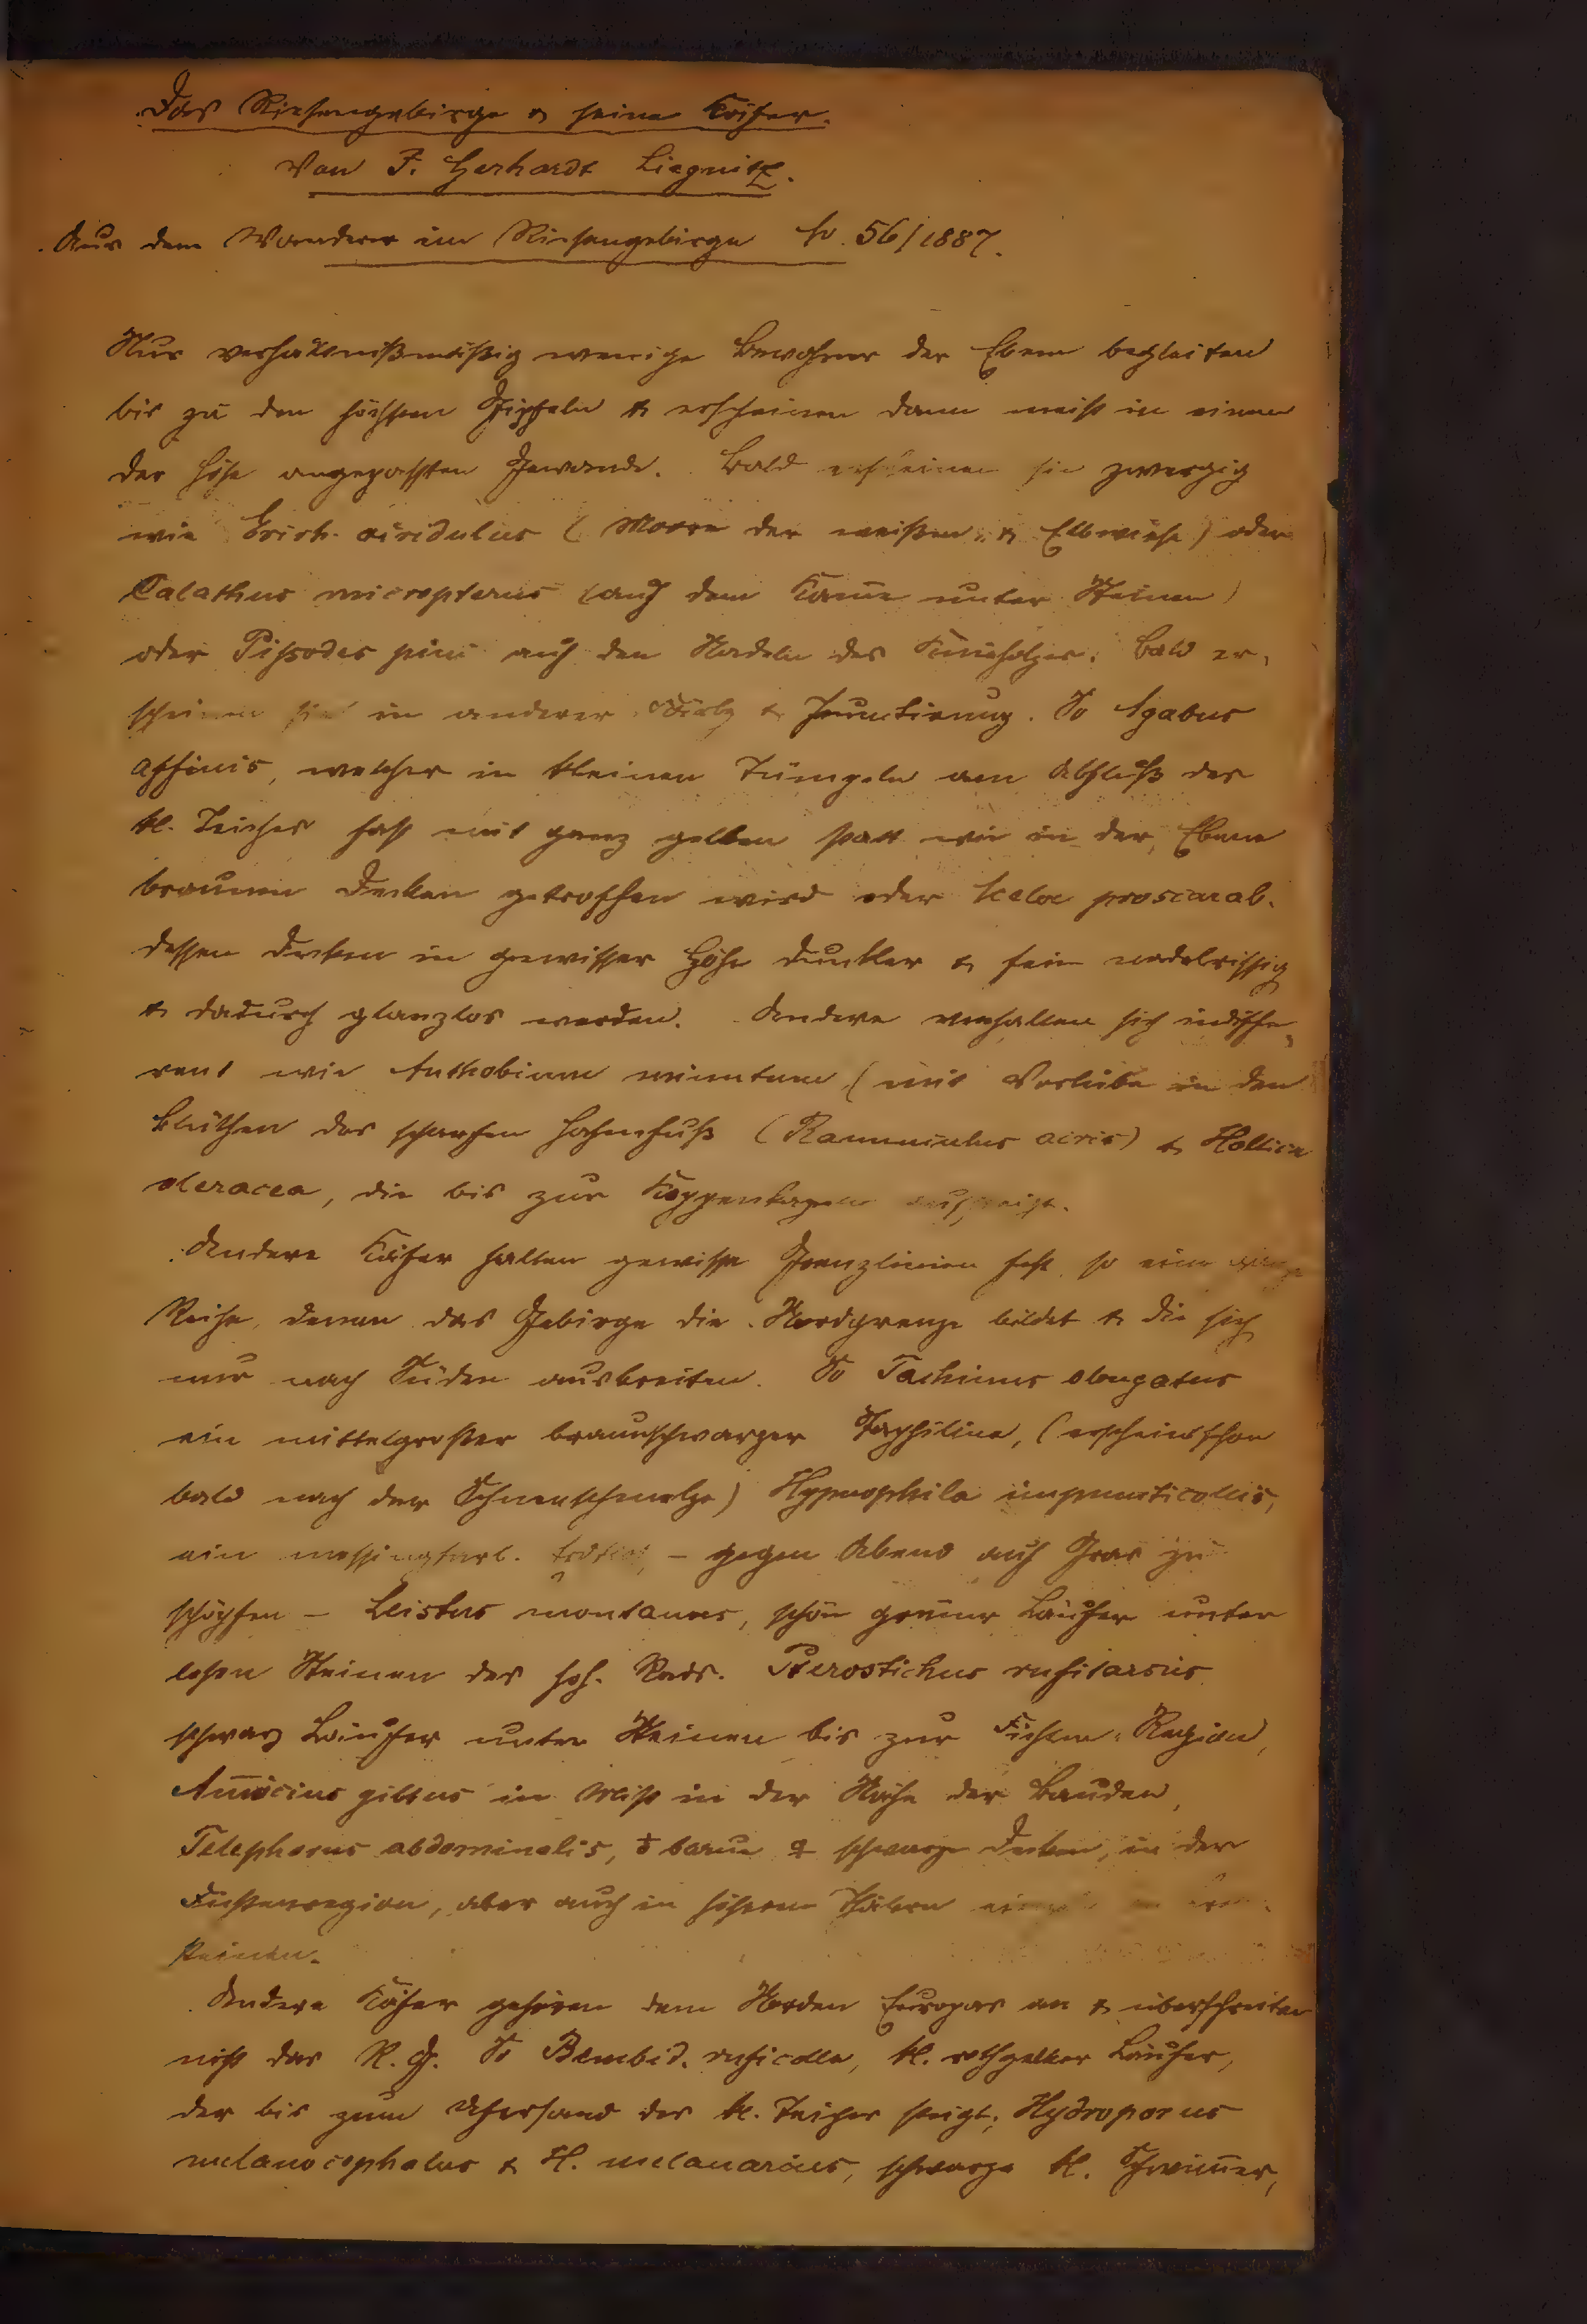 Das Riesengebirge & seine Käfer.
Von J. Gerhardt Liegnitz.
Aus dem Wanderer im Riesengebirge No. 56/1887.
Nur verhältnißmäßig wenige Bewohner der Ebene begleiten
bis zu den höchsten Gipfeln & erscheinen dann meist in einem
der Höhe angepaßten Gewande. Bald erscheinen sie zwergig
wie Erirh. viridulus (Moore der weißen- & Elbwiese) oder
Calathus micropterus (auf dem Kam̅e unter Steinen)
oder Pissodes pini auf den Nadeln des Knieholzes. Bald er-
scheinen sie in anderer & Punctierung. So Agabus
affinis, welcher in kleinen Tümpeln am Abfluß des
kl. Teiches fast mit ganz gelben statt wie in der Ebene
braunen Decken getroffen wird oder Meloe proscarab.
dessen Decken in gewisser Höhe dunkler & fein nadelrissig
& dadurch glanzlos werden. Andere verhalten sich indiffe-
rent wie Anthobium minutum, (mit Vorliebe in den
Blüthen des scharfen Hahnfuß (Ranunculus acris) & Haltica
oleracea, die bis zur Koppenkapelle aufsteigt.
Andere Käfer halten gewisse Grenzlinien fest so eine ganze
Reihe, denen das Gebirge die Nordgrenze bildet & die sich
nur nach Süden ausbreiten. So Tachinus elongatus
ein mittelgroßer braunschwarzer Staphiline, (erscheint schon
bald nach der Schneeschmelze) Hypnophila impuncticollis,
ein messingfarb. Erdfloh, – gegen Abend auf Gras zu
schöpfen – Leistus montanus, schön grüner Läufer unter
losen Steinen des hoh. Rads. Pterostichus rufitarsis
schwarz Läufer unter Steinen bis zur Fichten-Region,
Am̅oecius gibbus in Mist in der Nähe der Bauden,
Telephorus abdominalis, ♂ ♀ schwarze Decken, in der
Fichtenregion, aber auch in höheren Thälern

Andere Käfer gehören dem Norden Europas an & überschreiten
nicht das R. G. So Bembid. ruficolle, kl. rothgelber Läufer,
der bis zum Ufersand des kl. Teiches steigt; Hydroporus
melanocephalus & H. melanarius, schwarze kl. Schwim̅er,